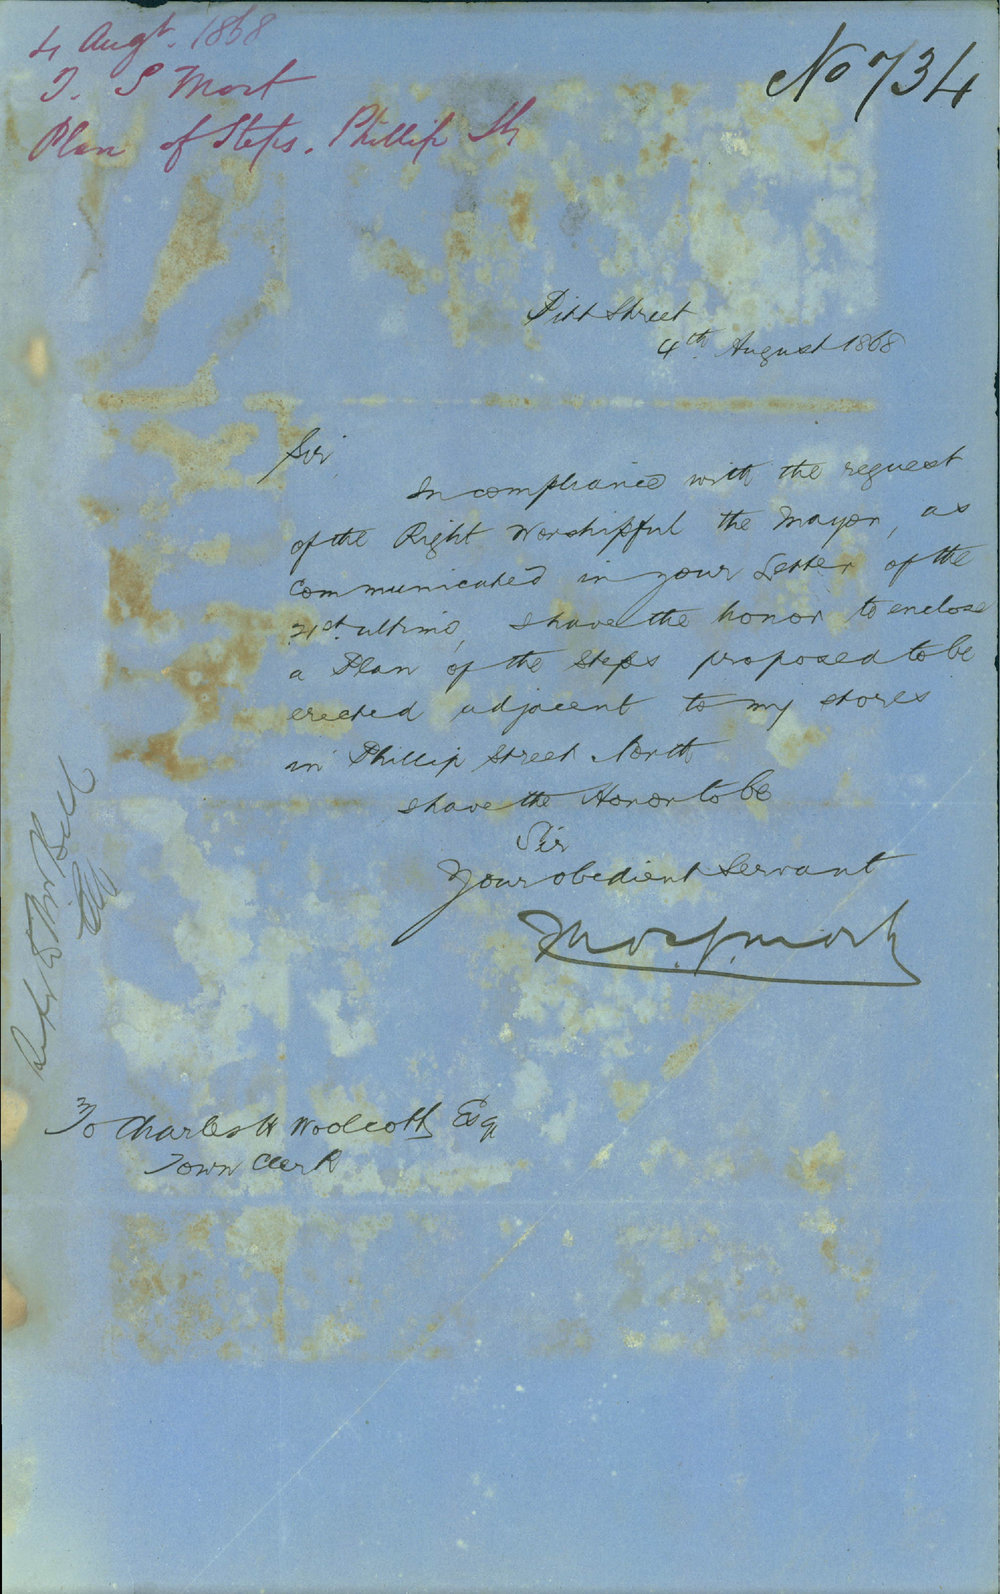 4 Augt. 1868
T. S Mort
Plan of Steps. Phillip St
No 734
Pitt Street
4th August 1868
Sir
In compliance with the request
of the Right Worshipful the Mayor, as
communicated in your Letter of the
21st ultimo, I have the honor to enclose
a Plan of the Steps proposed to be
erected adjacent to my stores
in Phillip Street North
I have the Honor to be
Sir
Your obedient Servant
Thos. S. Mort
To Charles H Woolcott Esq
Town Clerk
Mr Bell